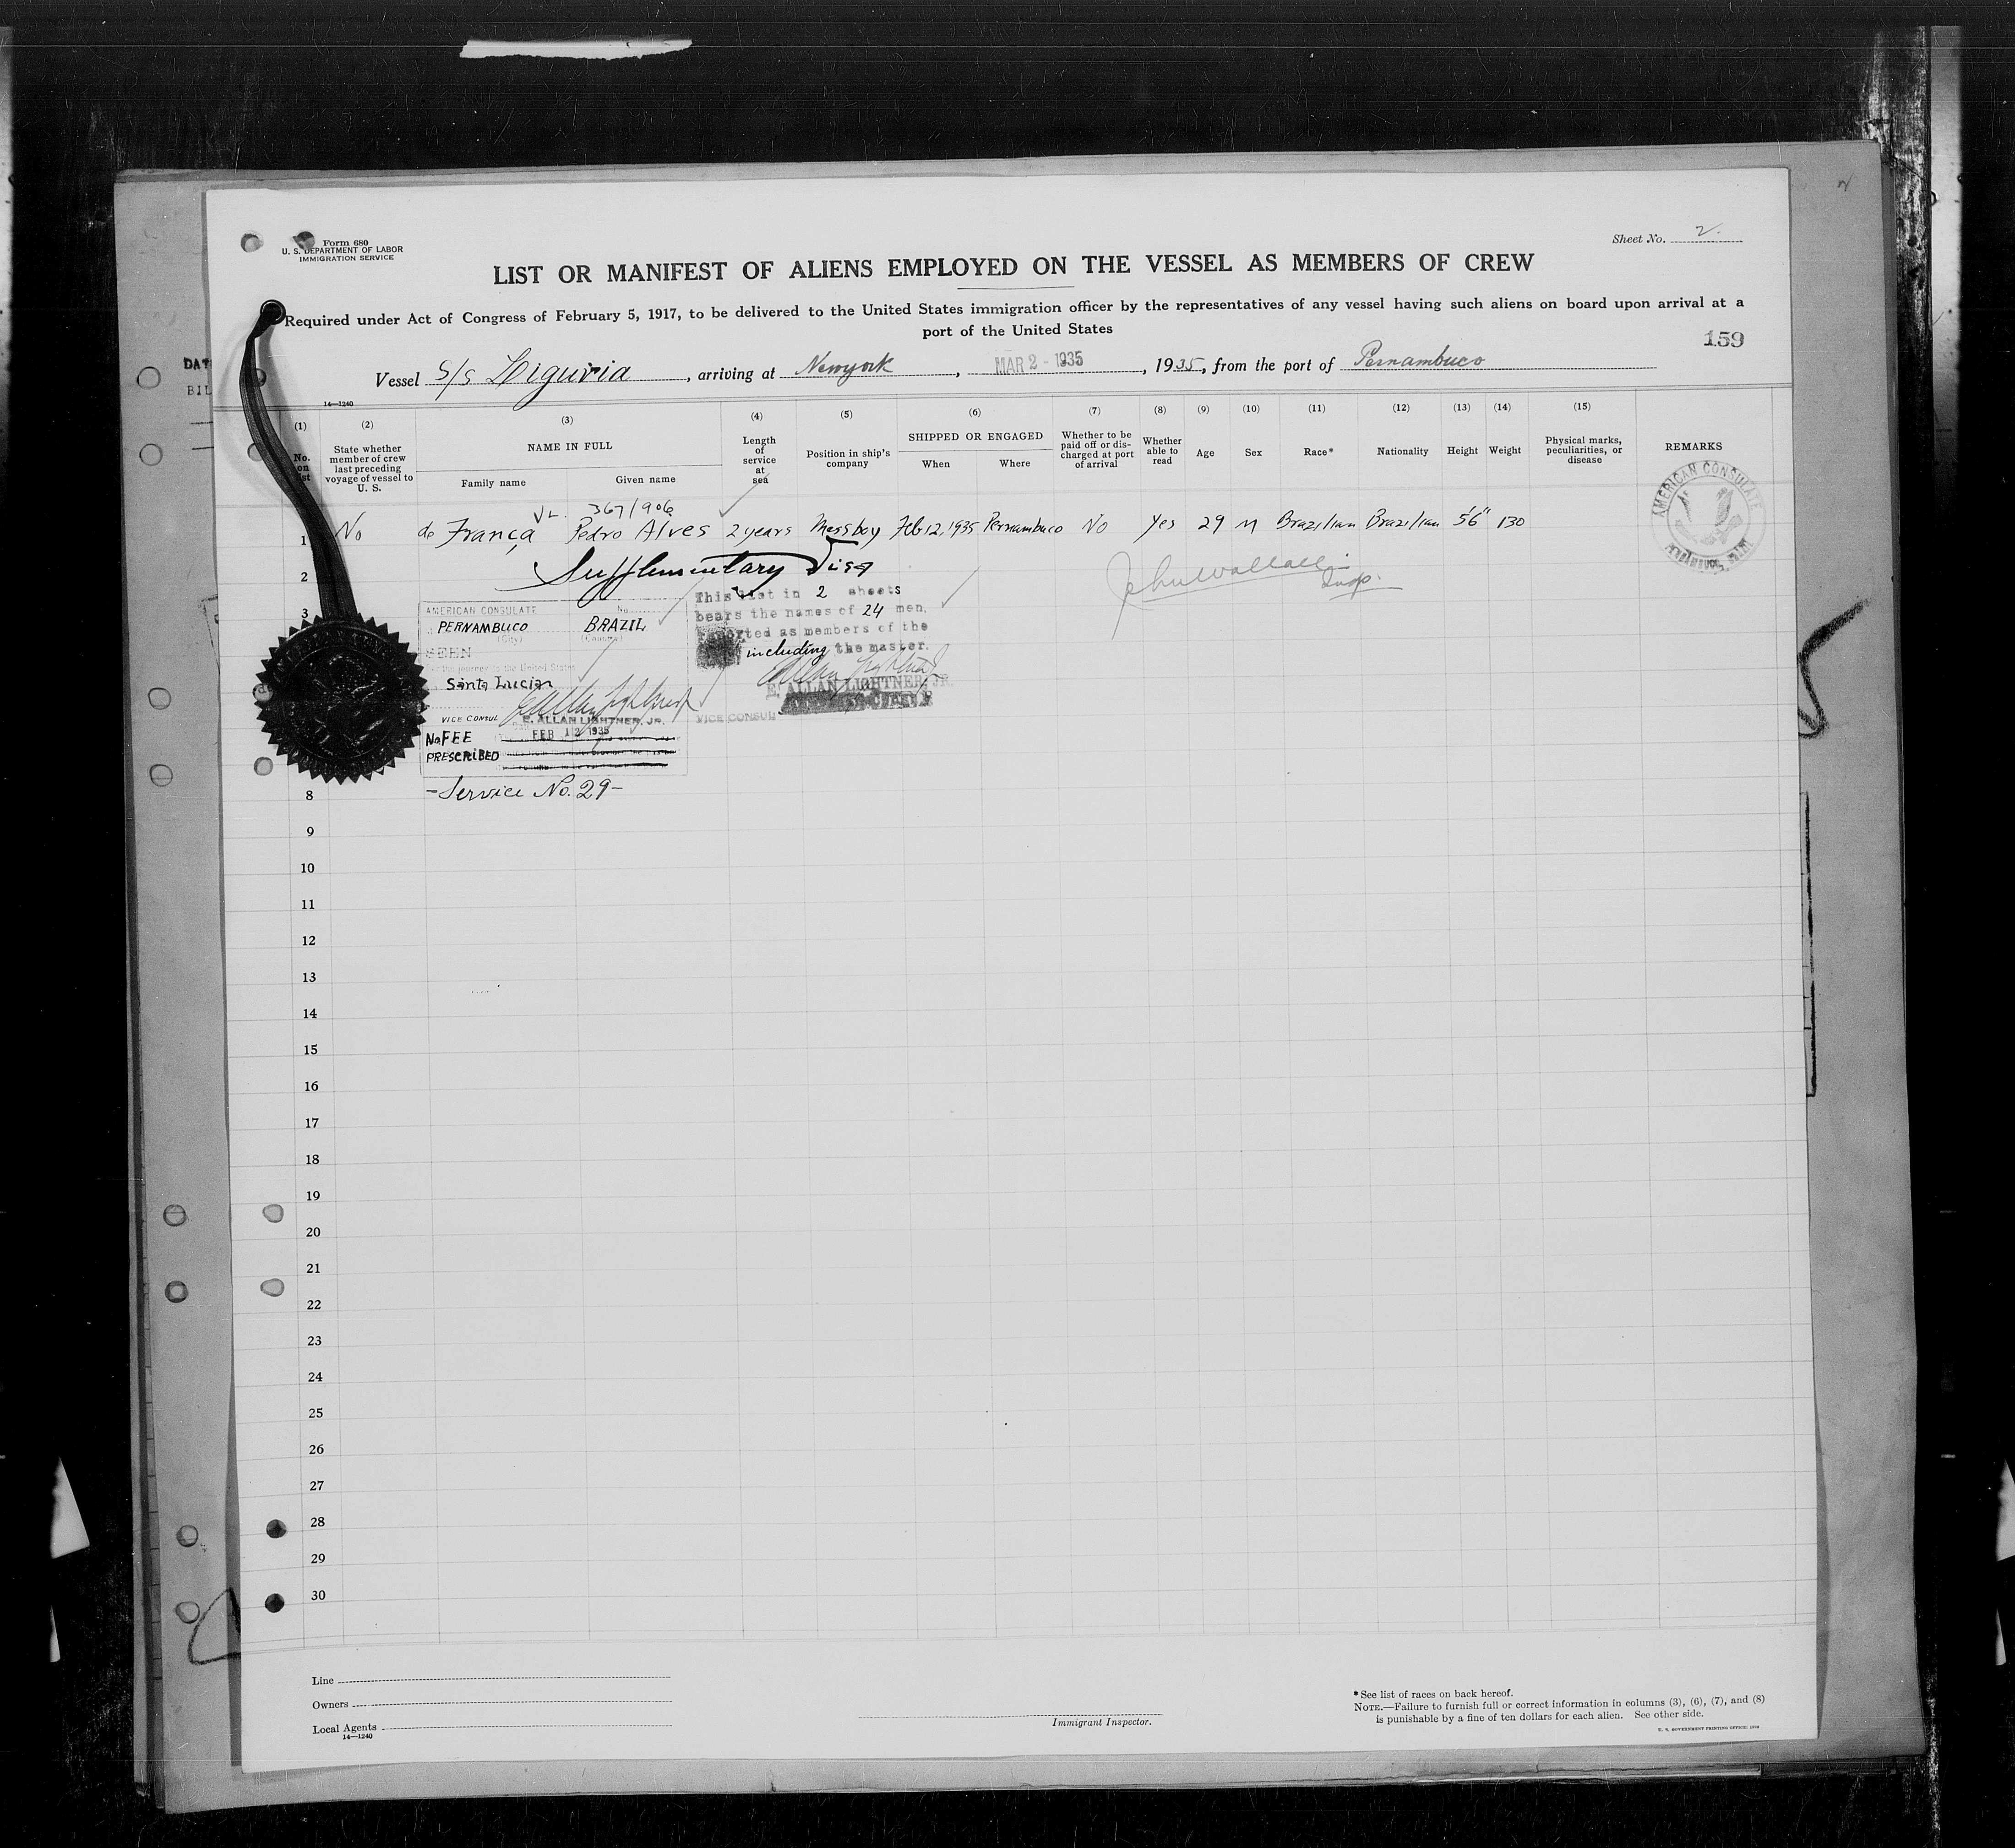 Form 680
U. S. DEPARTMENT OF LABOR
IMMIGRATION SERVICE
Sheet No. 2.
LIST OR MANIFEST OF ALIENS EMPLOYED ON THE VESSEL AS MEMBERS OF CREW
Required under Act of Congress of February 5, 1917, to be delivered to the United States immigration officer by the representatives of any vessel having such aliens on board upon arrival at a
port of the United States
159
Vessel S/S Liguria, arriving at Newyork, MAR 2 - 1935, 1935, from the port of Pernambuco
14—1240
(1) (2) (3) (4) (5) (6) (7) (8) (9) (10) (11) (12) (13) (14) (15)
No. on list
State whether member of crew last preceding voyage of vessel to U. S.
NAME IN FULL
Family name Given name
Length of service at sea
Position in ship's company
SHIPPED OR ENGAGED
When Where
Whether to be paid off or discharged at port of arrival
Whether able to read
Age
Sex
Race*
Nationality
Height
Weight
Physical marks, peculiarities, or disease
REMARKS
AMERICAN CONSULATE
367/906
1 No de França Pedro Alves 2 years Messboy Feb 12, 1935 Pernambuco No Yes 29 M Brazilian Brazilian 5'6" 130
2 Supplementary Visa
John Wallace
Insp.
3
This list in 2 sheets
bears the names of 24 men,
reported as members of the
including the master.
E. ALLAN LIGHTNER, JR.
VICE CONSUL
AMERICAN CONSULATE No.
PERNAMBUCO BRAZIL
(City) (Country)
SEEN
For the journey to the United States
Santa Lucian
VICE CONSUL E. ALLAN LIGHTNER, JR.
FEB 12 1935
No FEE
PRESCRIBED
-Service No. 29-
8
9
10
11
12
13
14
15
16
17
18
19
20
21
22
23
24
25
26
27
28
29
30
Line
Owners
Local Agents
14—1240
Immigrant Inspector.
* See list of races on back hereof.
NOTE.—Failure to furnish full or correct information in columns (3), (6), (7), and (8)
is punishable by a fine of ten dollars for each alien. See other side.
U. S. GOVERNMENT PRINTING OFFICE: